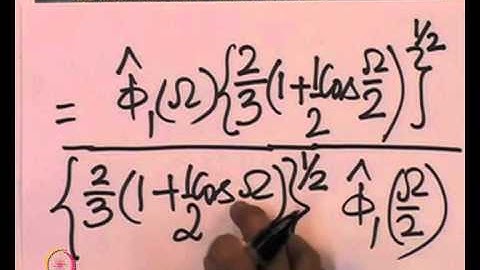 = Φ̂₁(Ω) {2/3 (1 + 1/2 Cos Ω/2)}^1/2
{2/3 (1 + 1/2 Cos Ω)}^1/2 Φ̂₁(Ω/2)